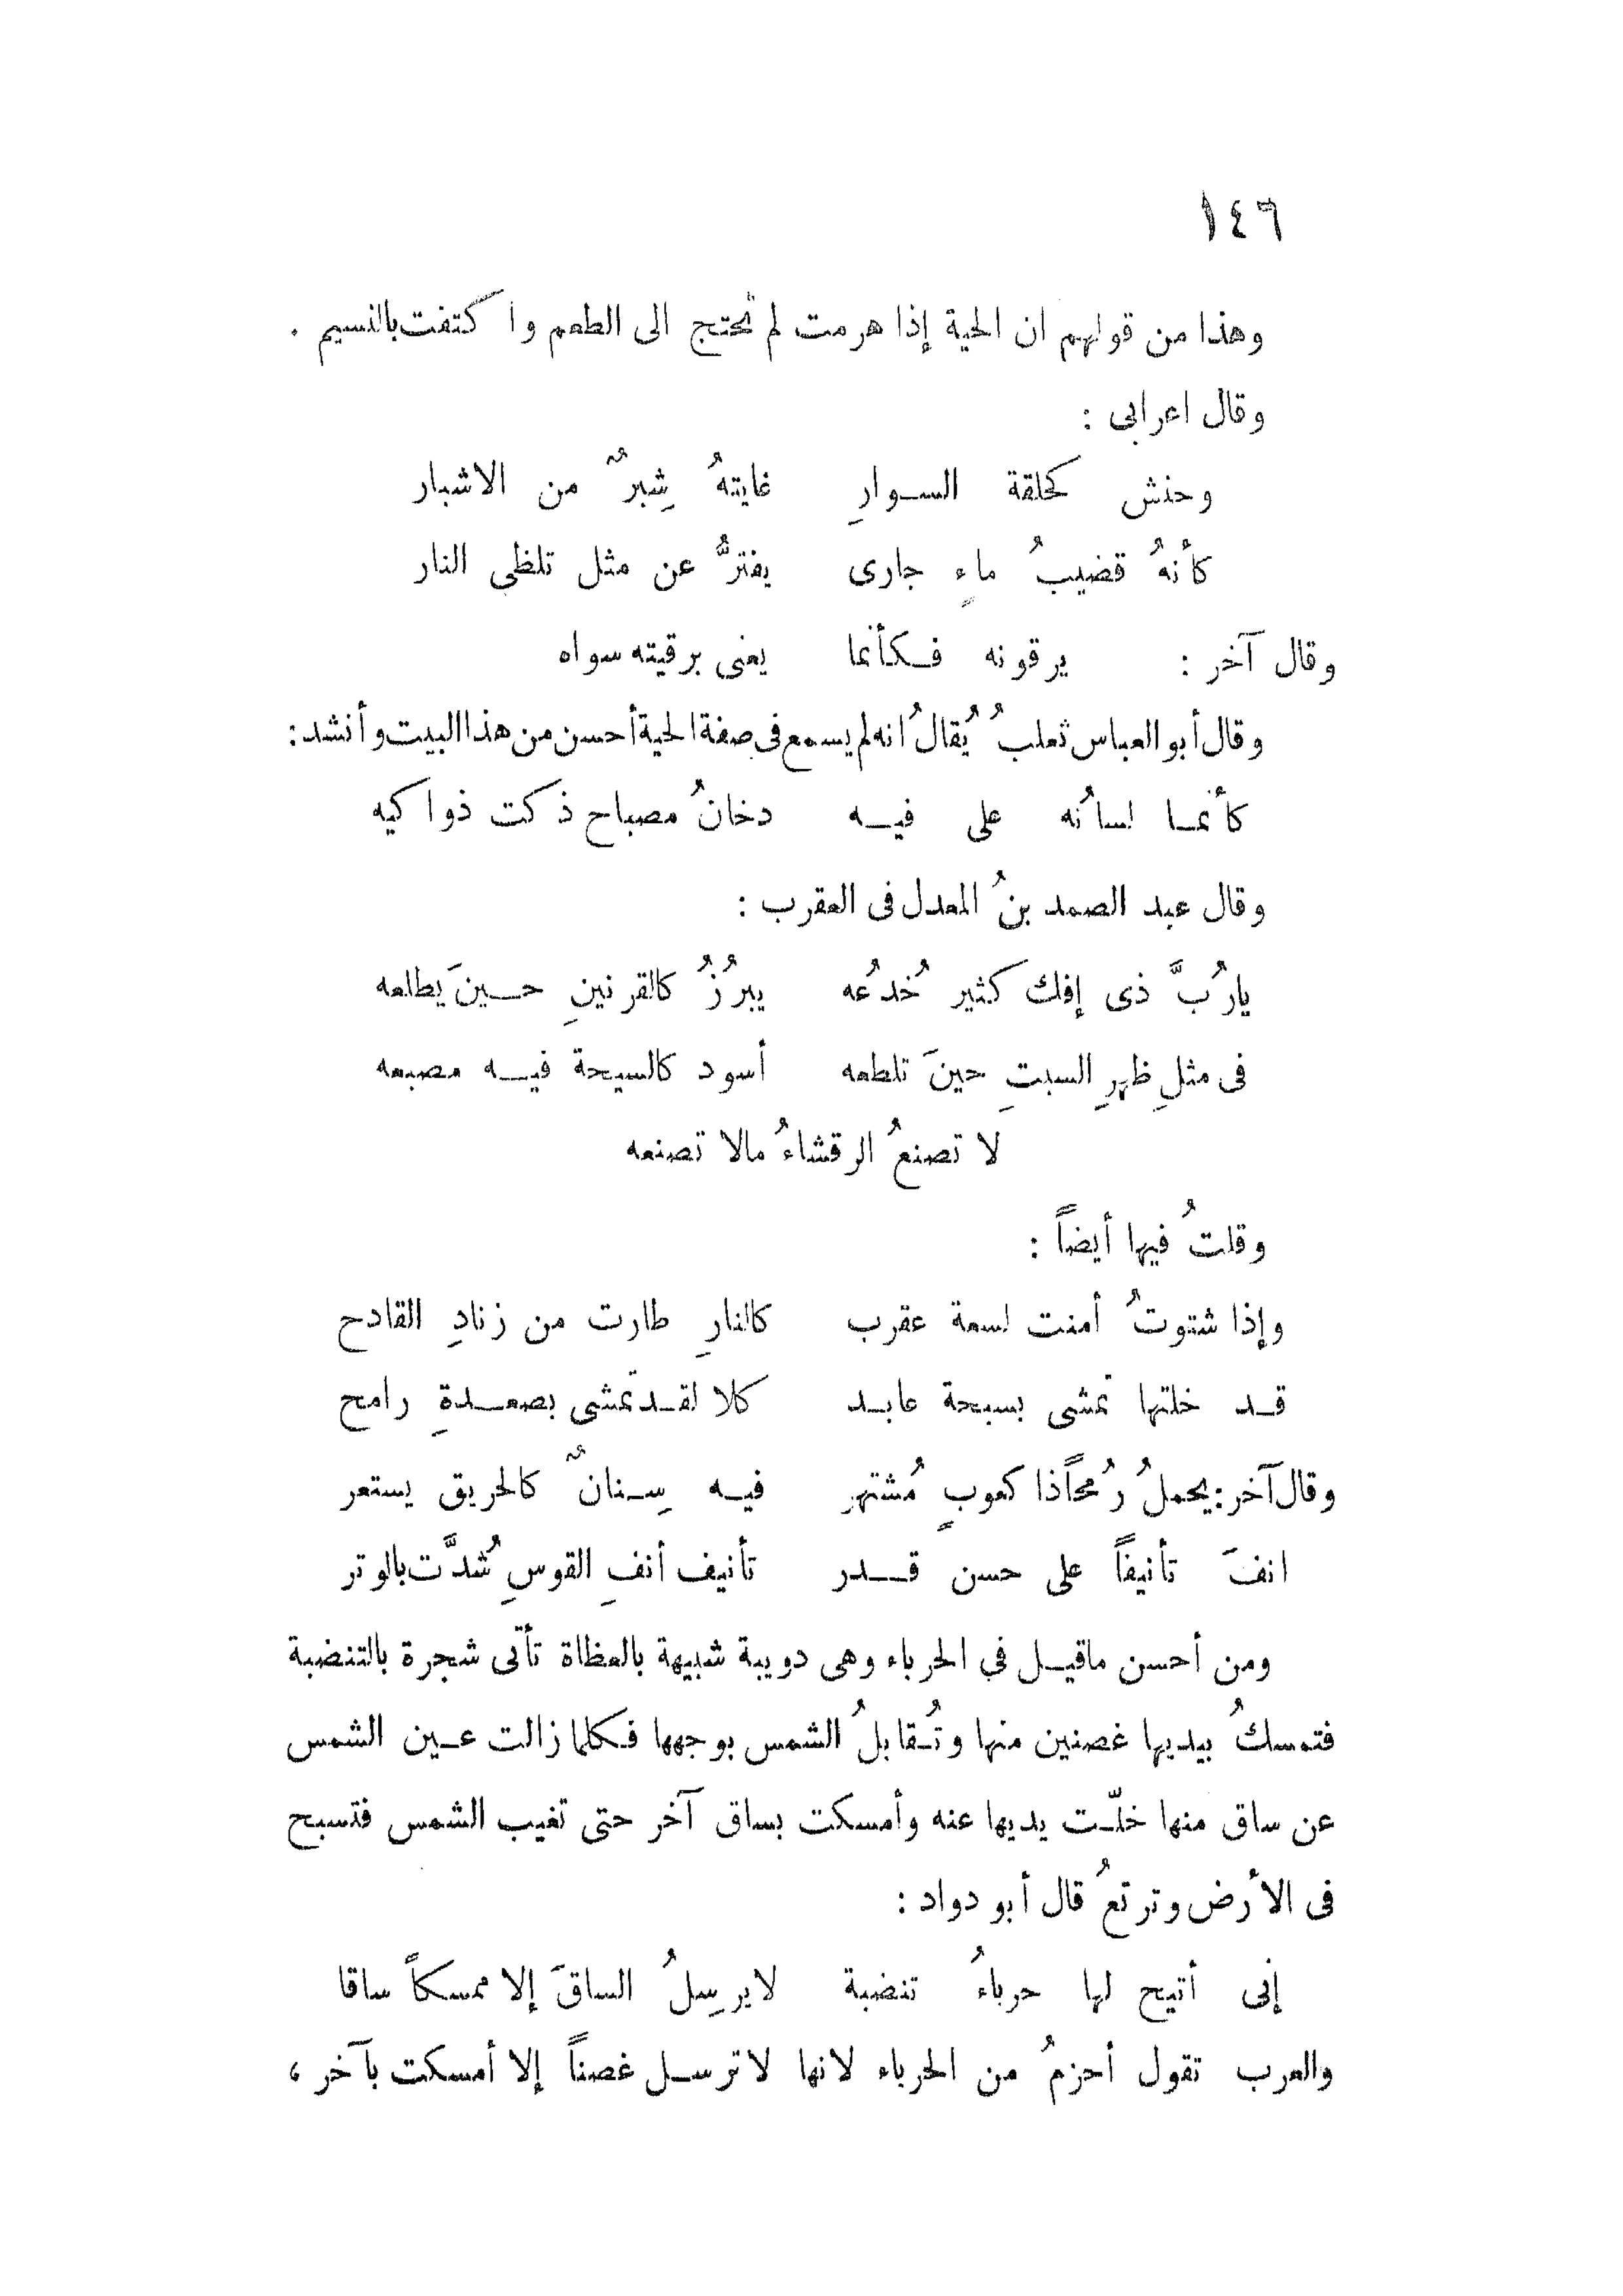 ١٤٦
وهذا من قولهم ان الحية إذا هرمت لم تحتج الى الطعم واكتفت بالنسيم .
وقال اعرابى :
وحنش كحلقة السوارِ غايتهُ شِبرٌ من الاشبار
كأنهُ قضيبُ ماءٍ جارى يفترُّ عن مثل تلظى النار
وقال آخر : يرقونه فكأنما يعنى برقيته سواه
وقال أبو العباس ثعلبُ يُقالُ انه لم يسمع فى صفة الحية أحسن من هذا البيت وأنشد :
كأنما لسانُه على فيه دخانُ مصباح ذكت ذواكيه
وقال عبد الصمد بنُ المعدل فى العقرب :
يارُبَّ ذى إفك كثير خُدعُه يبرُزُ كالقرنينِ حينَ يطلعه
فى مثلِ ظهرِ السبتِ حينَ تلطعه أسود كالسيحة فيه مصبعه
لا تصنعُ الرقشاءُ مالا تصنعه
وقلتُ فيها أيضاً :
وإذا شتوتُ أمنت لسعة عقرب كالنارِ طارت من زنادِ القادح
قد خلتها تمشى بسبحة عابد كلا لقد تمشى بصعدةِ رامح
وقال آخر : يحملُ رُمحاً ذا كعوبٍ مُشتهر فيه سِنانٌ كالحريق يستعر
انفَ تأنيفاً على حسن قدر تأنيف أنفِ القوسِ شُدَّت بالوتر
ومن أحسن ماقيل في الحرباء وهى دويبة شبيهة بالعظاة تأتى شجرة بالتنضبة
فتمسكُ بيديها غصنين منها وتُقابلُ الشمس بوجهها فكلما زالت عين الشمس
عن ساق منها خلّت يديها عنه وأمسكت بساق آخر حتى تغيب الشمس فتسبح
فى الأرض وترتعُ قال أبو دواد :
إنى أتيح لها حرباءُ تنضبة لايرسِلُ الساقَ إلا ممسكاً ساقا
والعرب تقول أحزمُ من الحرباء لانها لاترسل غصناً إلا أمسكت بآخر ،